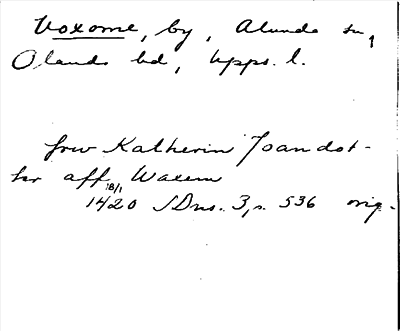 Voxome, by, Alunda sn,
Olands hd, Upps. l.
fru Katherin Joansdot-
ter aff Waxem
18/1 1420 SDns. 3, s. 536 orig.